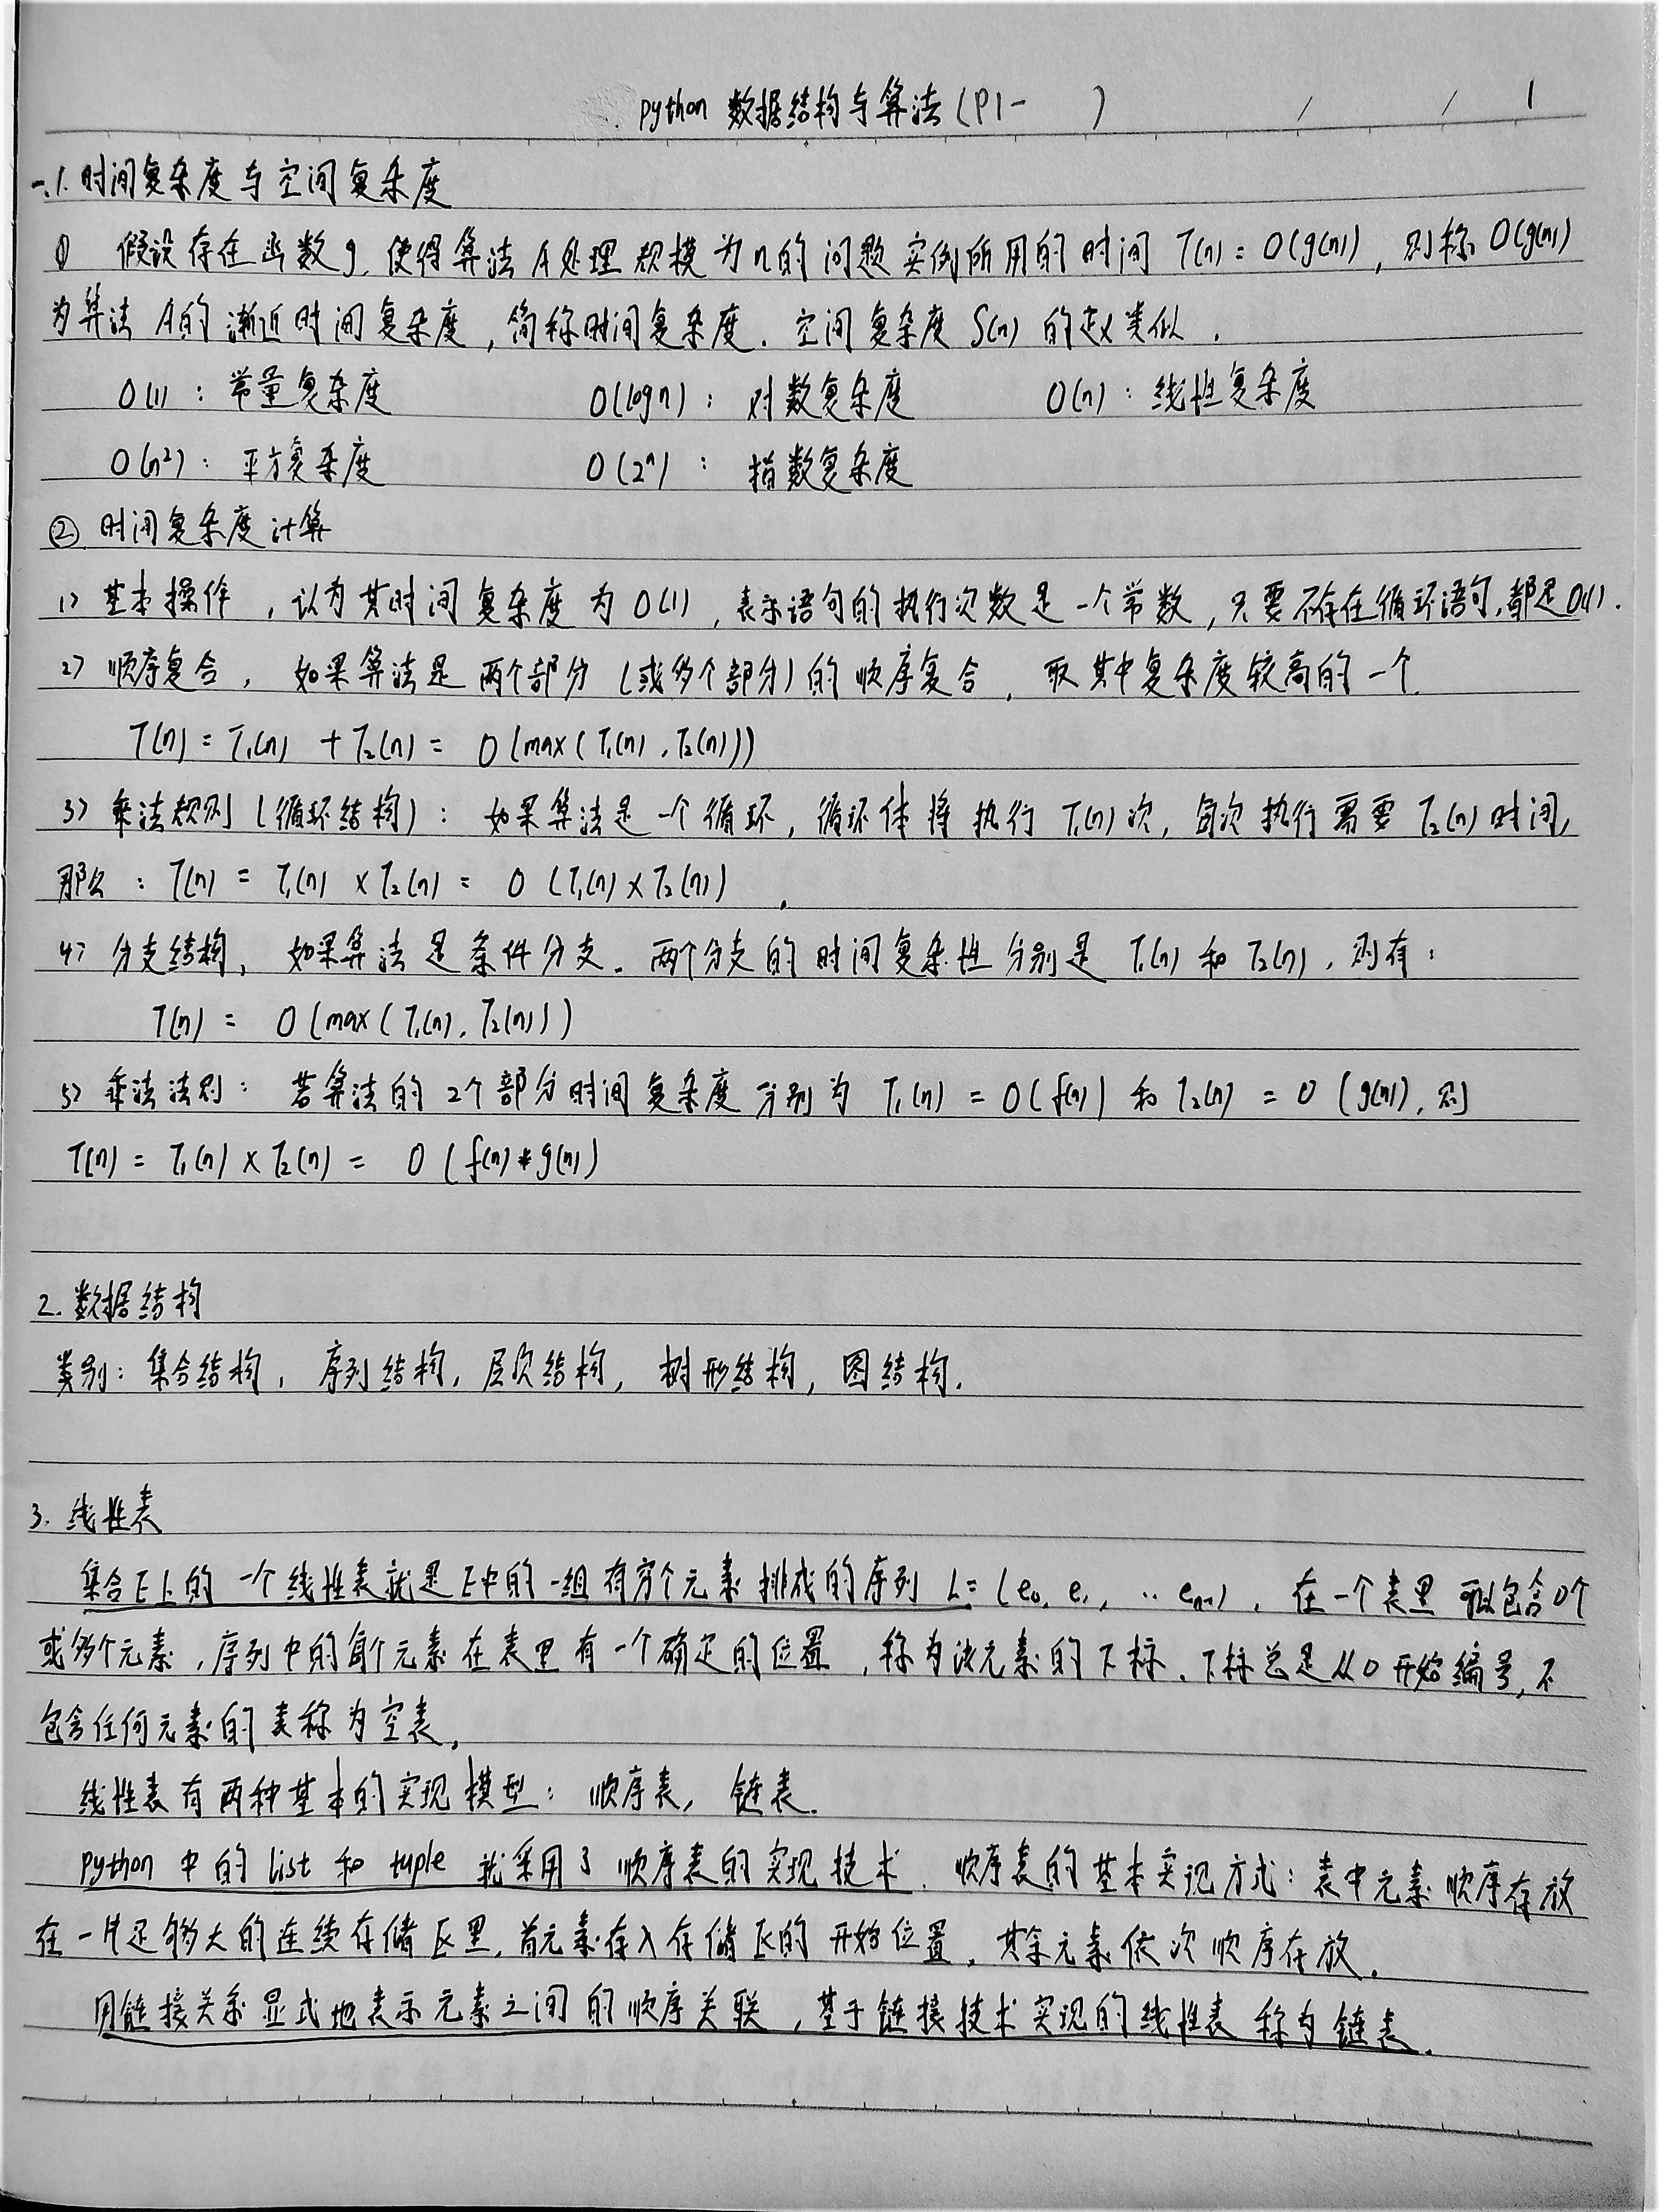 python 数据结构与算法 (P1-      )      /      /      1
一.1. 时间复杂度与空间复杂度
① 假设存在函数g, 使得算法A处理规模为n的问题实例所用的时间 T(n) = O(g(n)), 则称 O(g(n))
为算法A的渐近时间复杂度, 简称时间复杂度. 空间复杂度 S(n) 的定义类似.
O(1): 常量复杂度      O(logn): 对数复杂度      O(n): 线性复杂度
O(n²): 平方复杂度      O(2ⁿ): 指数复杂度
② 时间复杂度计算
1> 基本操作, 认为其时间复杂度为 O(1), 表示语句的执行次数是一个常数, 只要不存在循环语句, 都是O(1).
2> 顺序复合, 如果算法是两个部分 (或多个部分) 的顺序复合, 取其中复杂度较高的一个.
T(n) = T₁(n) + T₂(n) = O(max(T₁(n), T₂(n)))
3> 乘法规则 (循环结构): 如果算法是一个循环, 循环体将执行 T₁(n) 次, 每次执行需要 T₂(n) 时间,
那么: T(n) = T₁(n) × T₂(n) = O (T₁(n) × T₂(n)).
4> 分支结构, 如果算法是条件分支. 两个分支的时间复杂性分别是 T₁(n) 和 T₂(n), 则有:
T(n) = O(max(T₁(n), T₂(n)))
5> 乘法法则: 若算法的2个部分时间复杂度分别为 T₁(n) = O(f(n)) 和 T₂(n) = O (g(n)), 则
T(n) = T₁(n) × T₂(n) = O (f(n)*g(n))
2. 数据结构
类别: 集合结构, 序列结构, 层次结构, 树形结构, 图结构.
3. 线性表
集合E上的一个线性表就是E中的一组有穷个元素排成的序列 L = (e₀, e₁, ‥ eₙ₋₁), 在一个表里可以包含0个
或多个元素, 序列中的每个元素在表里有一个确定的位置, 称为该元素的下标. 下标总是从0开始编号, 不
包含任何元素的表称为空表.
线性表有两种基本的实现模型: 顺序表, 链表.
python 中的 list 和 tuple 就采用了顺序表的实现技术. 顺序表的基本实现方式: 表中元素顺序存放
在一片足够大的连续存储区里, 首元素存入存储区的开始位置, 其余元素依次顺序存放.
用链接关系显式地表示元素之间的顺序关联, 基于链接技术实现的线性表称为链表.